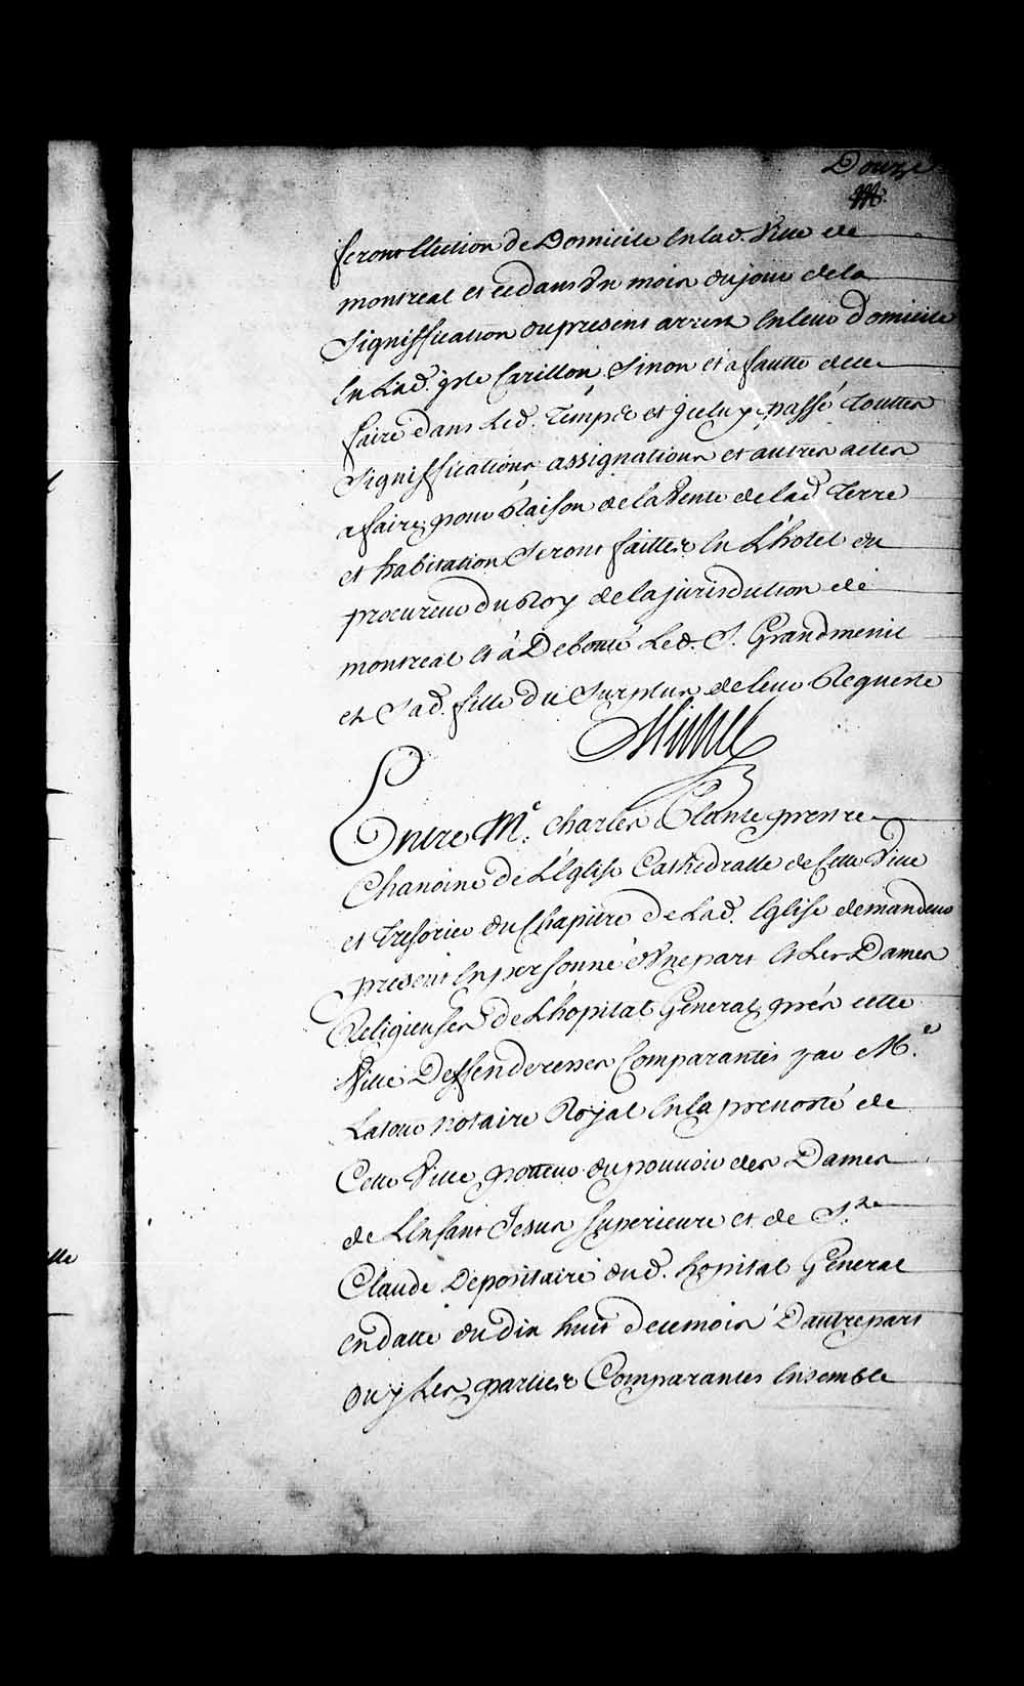 Douze
feront Election de Domicile En lad. Ville de
montreal et ce dans Un mois du jour de la
Signiffication du present arrest En leur domicile
En Lad. isle Carillon Sinon et a fautte de ce
faire dans Led. Temps et Icelui passé touttes
Significations assignations et autres actes
a faire pour Raison de la Vente de lad. Terre
et habitation Seront faittes En L'hotel du
procureur du Roy de la jurisdiction de
montreal Et à Debouté Led. S. Grandmenil
et Sad. fille du Surplus de leur Requeste
Michel
Entre M.e Charles Plante prestre
Chanoine de L'Eglise Cathedralle de Cette Ville
et Tresorier du Chapitre de Lad. Eglise demandeur
present En personne d'Une part Et Les Dames
Religieuses de L'hopital General prés cette
Ville Deffenderesses Comparantes par M.e
Latour Notaire Royal En la prevosté de
Cette Ville porteur du pouvoir des Dames
de L'Enfant Jesus Superieure et de S.te
Claude Depositaire dud. hopital General
En datte du dix huit de ce mois D'autre part
Ouy Les parties Comparantes Ensemble